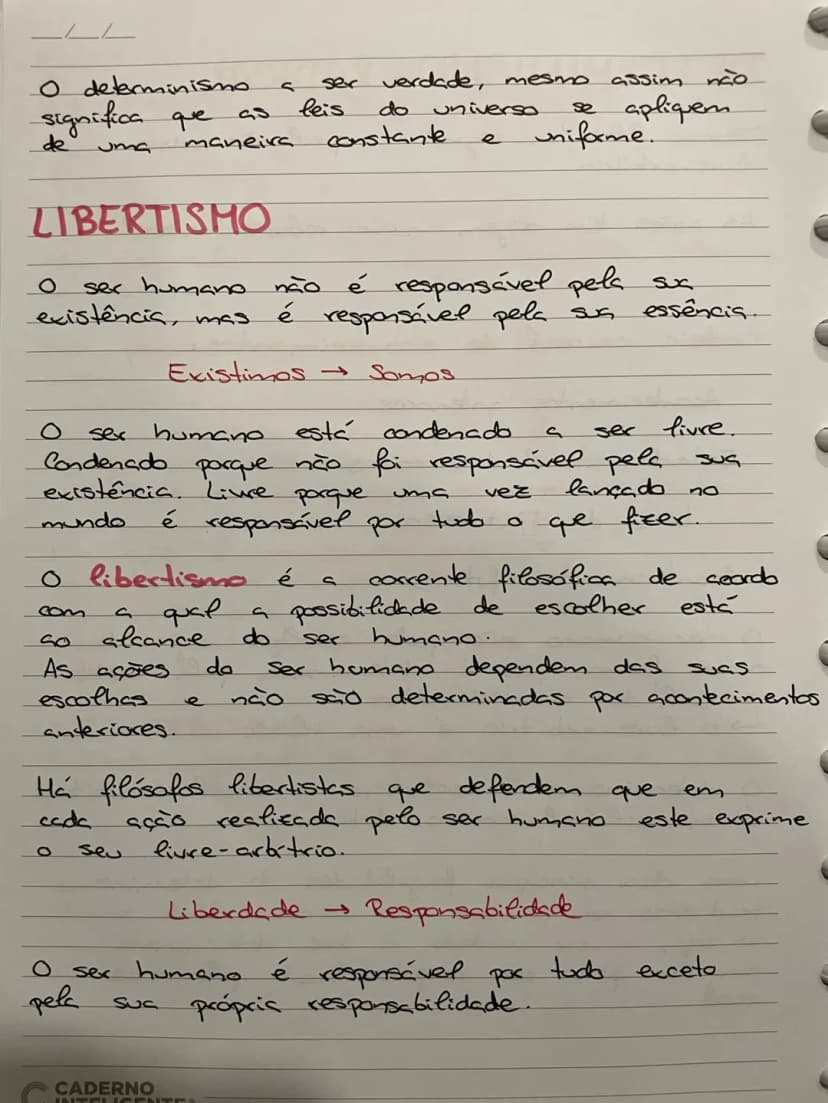 O determinismo a ser verdade, mesmo assim não
significa que as leis do universo se apliquem
de uma maneira constante e uniforme.
LIBERTISMO
O ser humano não é responsável pela sua
existência, mas é responsável pela sua essência.
Existimos → Somos
O ser humano está condenado a ser livre.
Condenado porque não foi responsável pela sua
existência. Livre porque uma vez lançado no
mundo é responsável por tudo o que fizer.
O libertismo é a corrente filosófica de acordo
com a qual a possibilidade de escolher está
ao alcance do ser humano.
As ações do ser humano dependem das suas
escolhas e não são determinadas por acontecimentos
anteriores.
Há filósofos libertistas que defendem que em
cada ação realizada pelo ser humano este exprime
o seu livre-arbítrio.
Liberdade → Responsabilidade
O ser humano é responsável por tudo exceto
pela sua própria responsabilidade.
CADERNO
INTELIGENTE